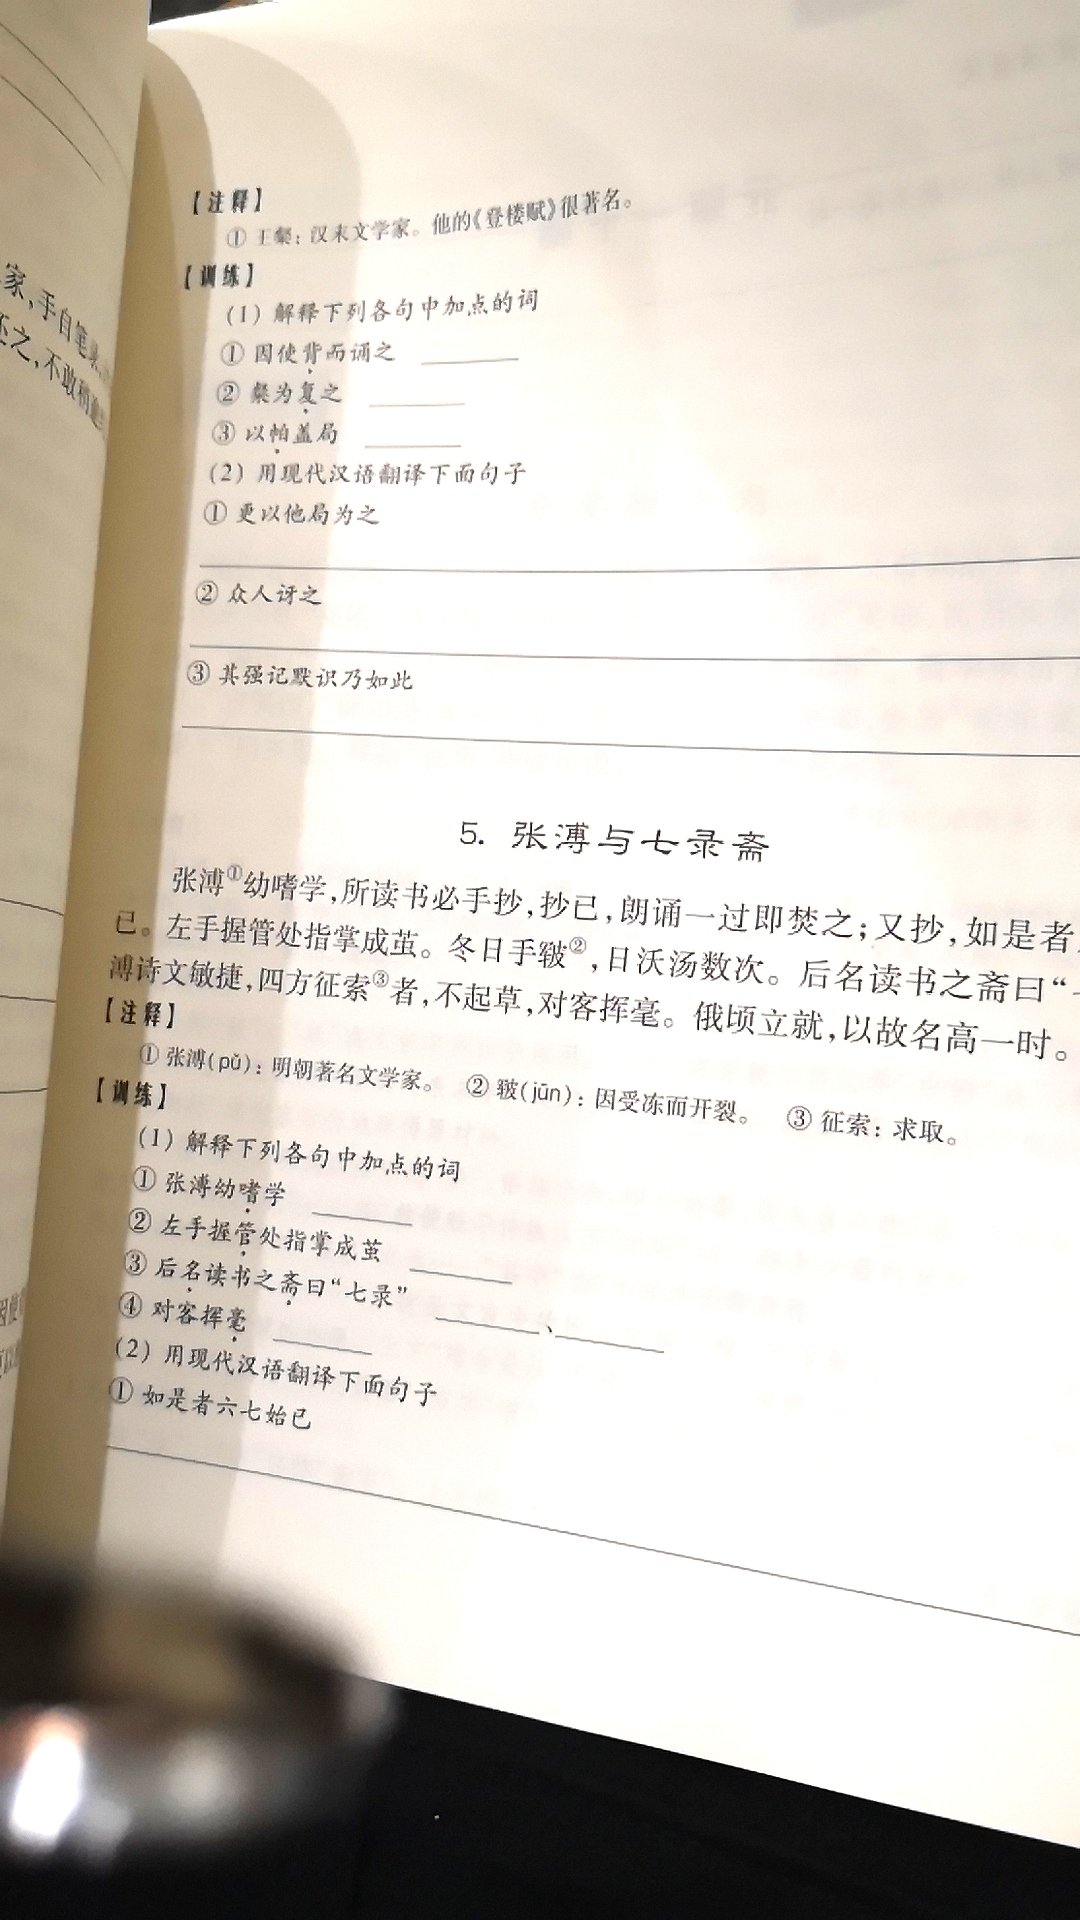 家,手自笔
之,不敢稍
【注释】
① 王粲:汉末文学家。他的《登楼赋》很著名。
【训练】
(1) 解释下列各句中加点的词
① 因使背而诵之
② 粲为复之
③ 以帕盖局
(2) 用现代汉语翻译下面句子
① 更以他局为之
② 众人讶之
③ 其强记默识乃如此
5. 张溥与七录斋
张溥①幼嗜学,所读书必手抄,抄已,朗诵一过即焚之;又抄,如是者
已。左手握管处指掌成茧。冬日手皲②,日沃汤数次。后名读书之斋曰“
溥诗文敏捷,四方征索③者,不起草,对客挥毫。俄顷立就,以故名高一时。
【注释】
① 张溥(pǔ):明朝著名文学家。 ② 皲(jūn):因受冻而开裂。 ③ 征索:求取。
【训练】
(1) 解释下列各句中加点的词
① 张溥幼嗜学
② 左手握管处指掌成茧
③ 后名读书之斋曰“七录” 、
④ 对客挥毫
(2) 用现代汉语翻译下面句子
① 如是者六七始已